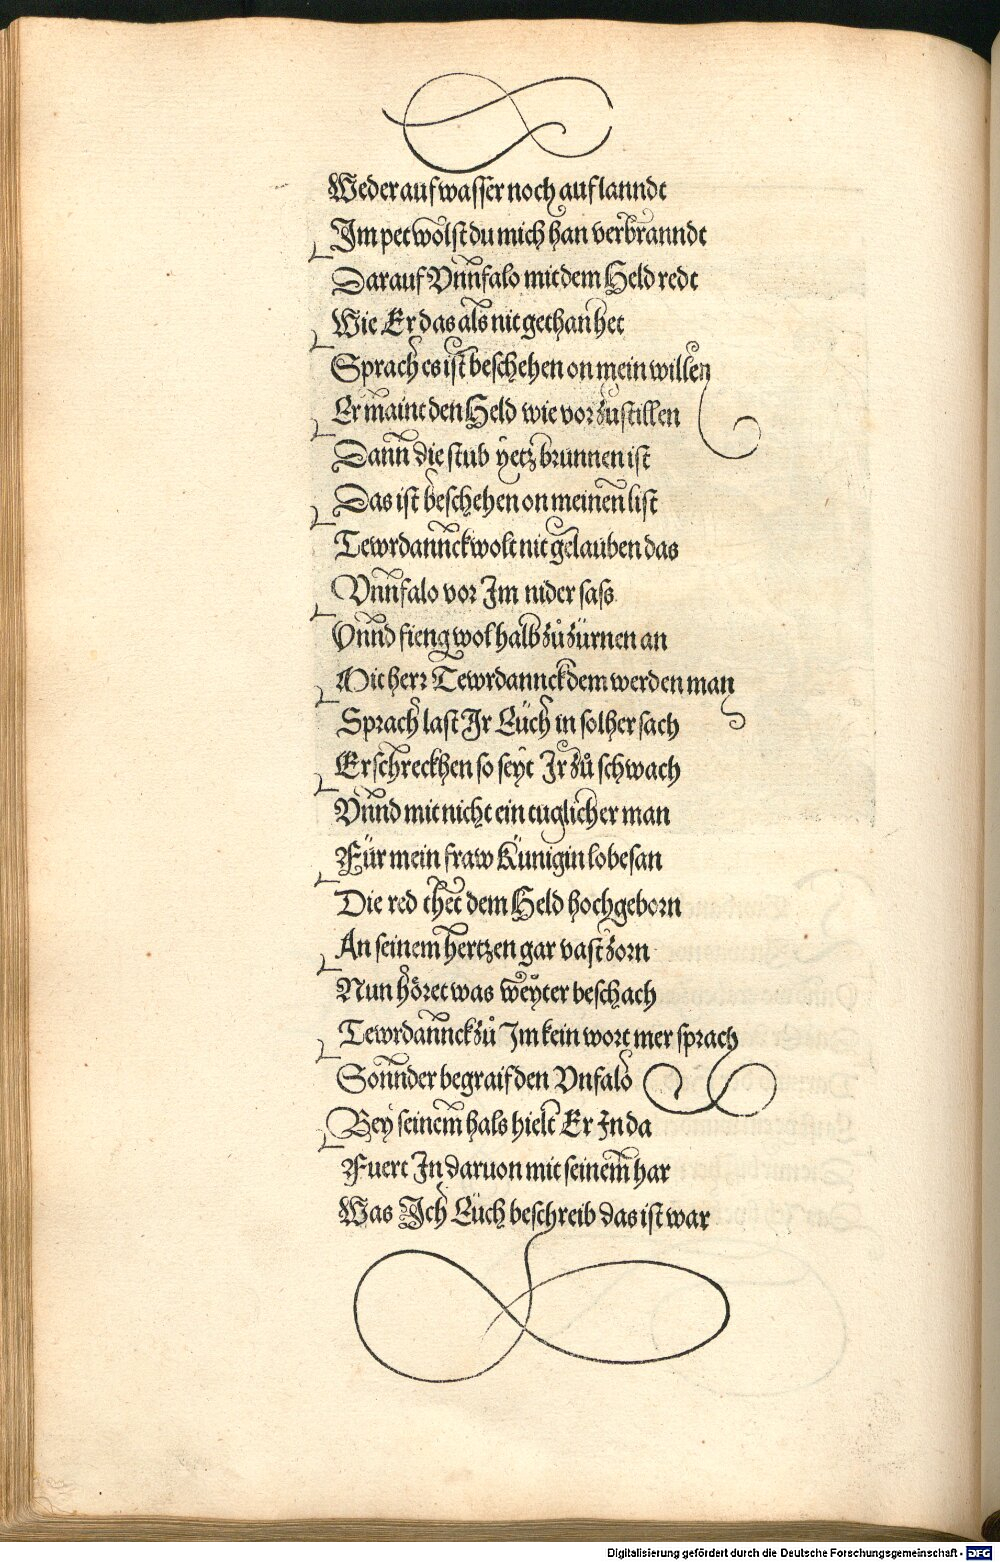 Weder auf wasser noch auf lanndt
Im pet wolst du mich han verbranndt
Darauf Vnnfalo mit dem Held redt
Wie Er das als nit gethan het
Sprach es ist beschehen on mein willen
Er maint den Held wie vor zustillen
Dann die stub yetz brunnen ist
Das ist beschehen on meinen list
Tewrdannck wolt nit gelauben das
Vnnfalo vor Im nider sass
Vnnd fieng wol halb zů zürnen an
Mit herr Tewrdannck dem werden man
Sprach last Ir Eüch in solher sach
Erschreckhen so seyt Ir zů schwach
Vnnd mit nicht ein tuglicher man
Für mein fraw Künigin lobesan
Die red thet dem Held hochgeborn
An seinem hertzen gar vast zorn
Nun höret was weyter beschach
Tewrdannck zů Im kein wort mer sprach
Sonnder begraif den Vnfalo
Bey seinem hals hielt Er In da
Fuert In daruon mit seinem har
Was Ich Eüch beschreib das ist war
Digitalisierung gefördert durch die Deutsche Forschungsgemeinschaft - DFG